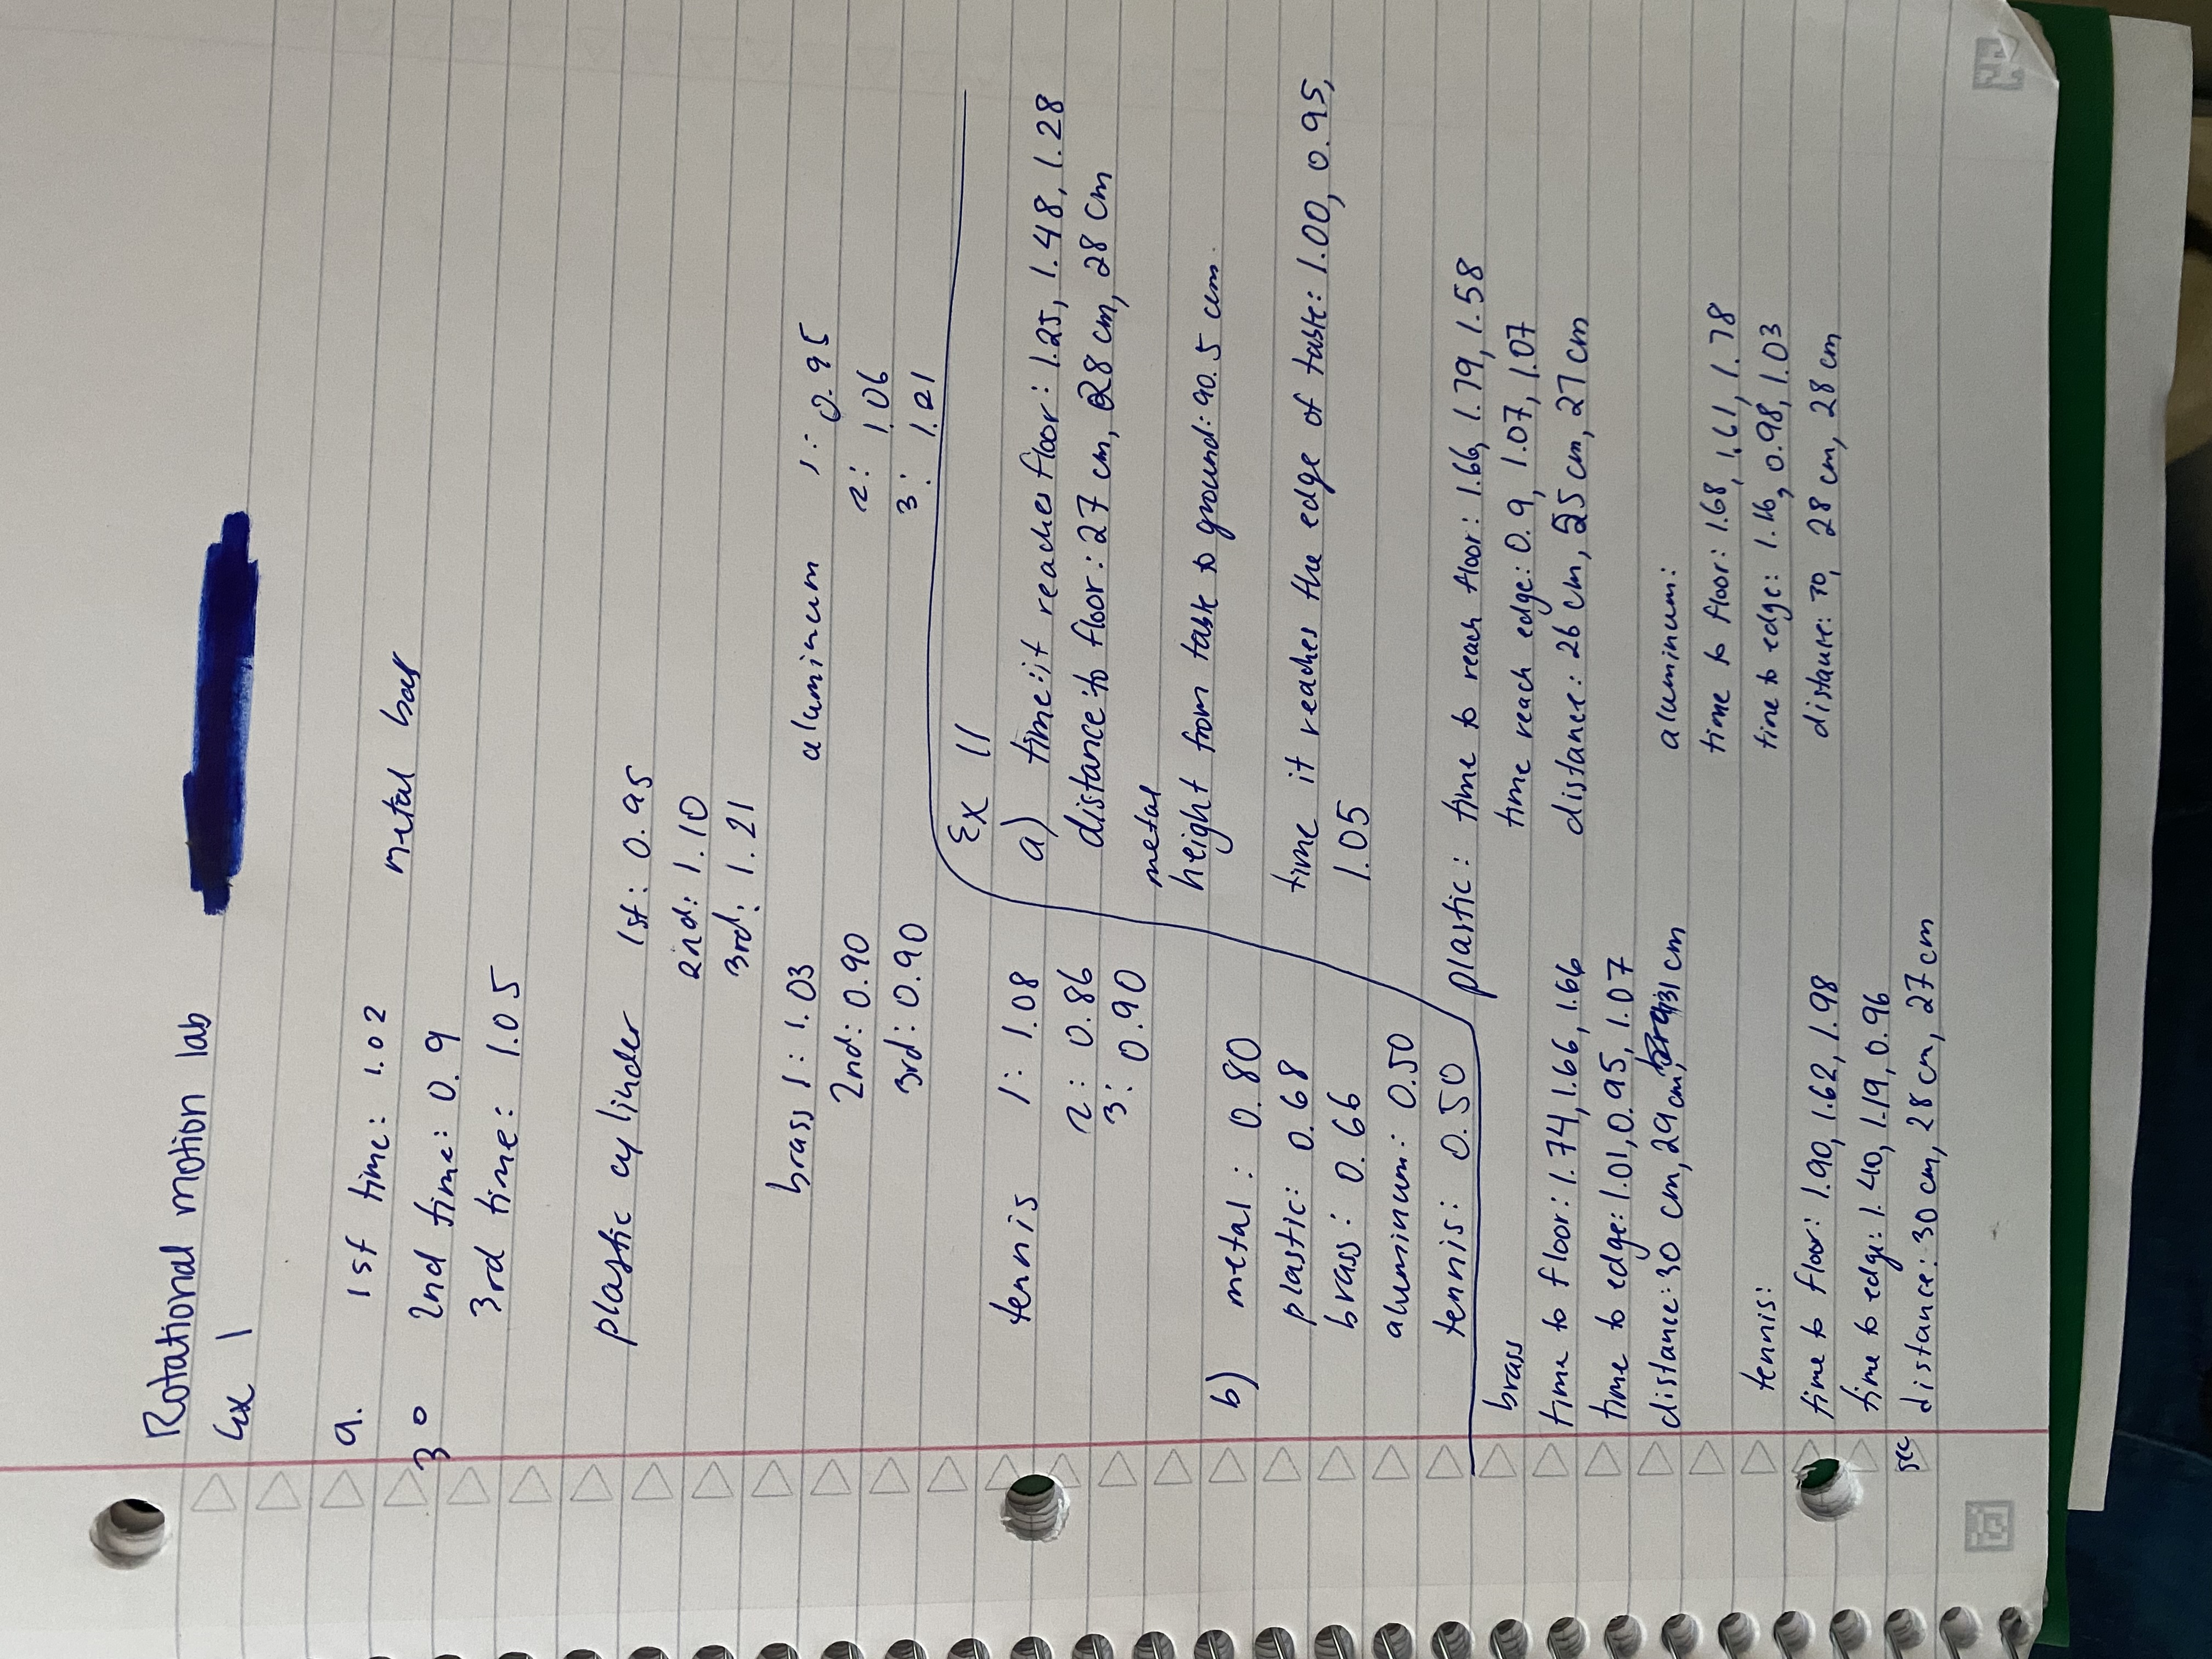 Rotational motion lab
Ex 1
a. 1st time: 1.02
30 2nd time: 0.9
3rd time: 1.05
metal ball
plastic cylinder 1st: 0.95
2nd: 1.10
3rd: 1.21
brass 1: 1.03
2nd: 0.90
3rd: 0.90
aluminum 1: 0.95
2: 1.06
3: 1.01
tennis 1: 1.08
2: 0.86
3: 0.90
b) metal: 0.80
plastic: 0.68
brass: 0.66
aluminum: 0.50
tennis: 0.50
Ex 11
a) time it reaches floor: 1.25, 1.48, 1.28
distance to floor: 27 cm, 28 cm, 28 cm
metal
height from table to ground: 90.5 cm
time it reaches the edge of table: 1.00, 0.95,
1.05
plastic: time to reach floor: 1.66, 1.79, 1.58
time reach edge: 0.9, 1.07, 1.07
distance: 26 cm, 25 cm, 27 cm
brass
time to floor: 1.74, 1.66, 1.66
time to edge: 1.01, 0.95, 1.07
distance: 30 cm, 29 cm, 31 cm
aluminum:
time to floor: 1.68, 1.61, 1.78
time to edge: 1.16, 0.98, 1.03
distance: 30, 28 cm, 28 cm
tennis:
time to floor: 1.90, 1.62, 1.98
time to edge: 1.40, 1.19, 0.96
sec distance: 30 cm, 28 cm, 27 cm